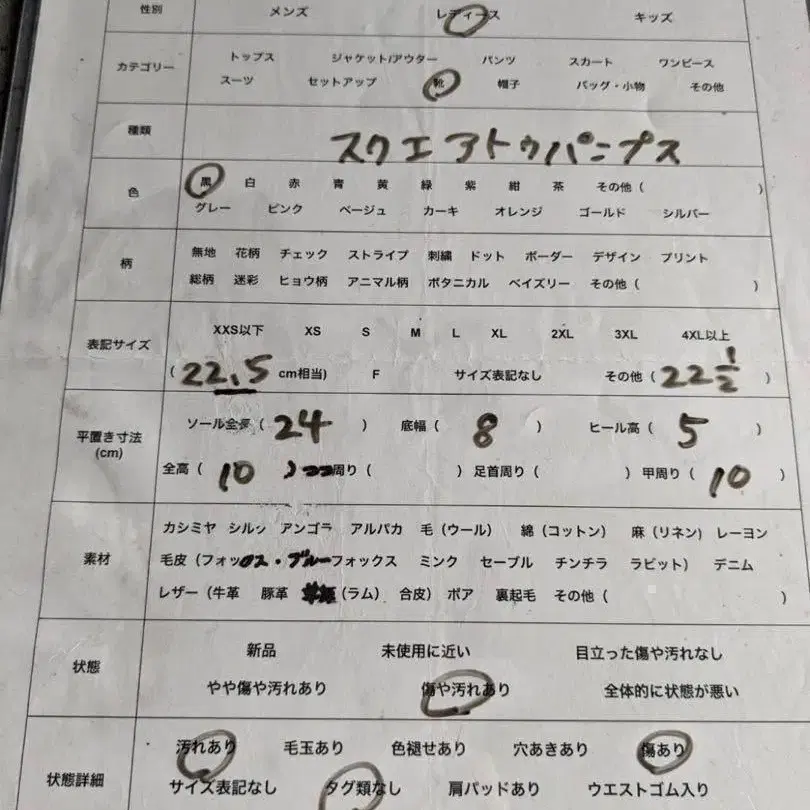 性別 メンズ レディース キッズ
カテゴリー トップス ジャケット/アウター パンツ スカート ワンピース
スーツ セットアップ 靴 帽子 バッグ・小物 その他
種類 スクエアトゥパンプス
色 黒 白 赤 青 黄 緑 紫 紺 茶 その他( )
グレー ピンク ベージュ カーキ オレンジ ゴールド シルバー
柄 無地 花柄 チェック ストライプ 刺繍 ドット ボーダー デザイン プリント
総柄 迷彩 ヒョウ柄 アニマル柄 ボタニカル ペイズリー その他( )
表記サイズ XXS以下 XS S M L XL 2XL 3XL 4XL以上
(22.5 cm相当) F サイズ表記なし その他(22 1/2)
平置き寸法 ソール全長(24) 底幅(8) ヒール高(5)
(cm) 全高(10) 周り( ) 足首周り( ) 甲周り(10)
素材 カシミヤ シルク アンゴラ アルパカ 毛(ウール) 綿(コットン) 麻(リネン) レーヨン
毛皮(フォックス・ブルーフォックス ミンク セーブル チンチラ ラビット) デニム
レザー(牛革 豚革 (ラム) 合皮) ボア 裏起毛 その他( )
状態 新品 未使用に近い 目立った傷や汚れなし
やや傷や汚れあり 傷や汚れあり 全体的に状態が悪い
状態詳細 汚れあり 毛玉あり 色褪せあり 穴あきあり 傷あり
サイズ表記なし タグ類なし 肩パッドあり ウエストゴム入り